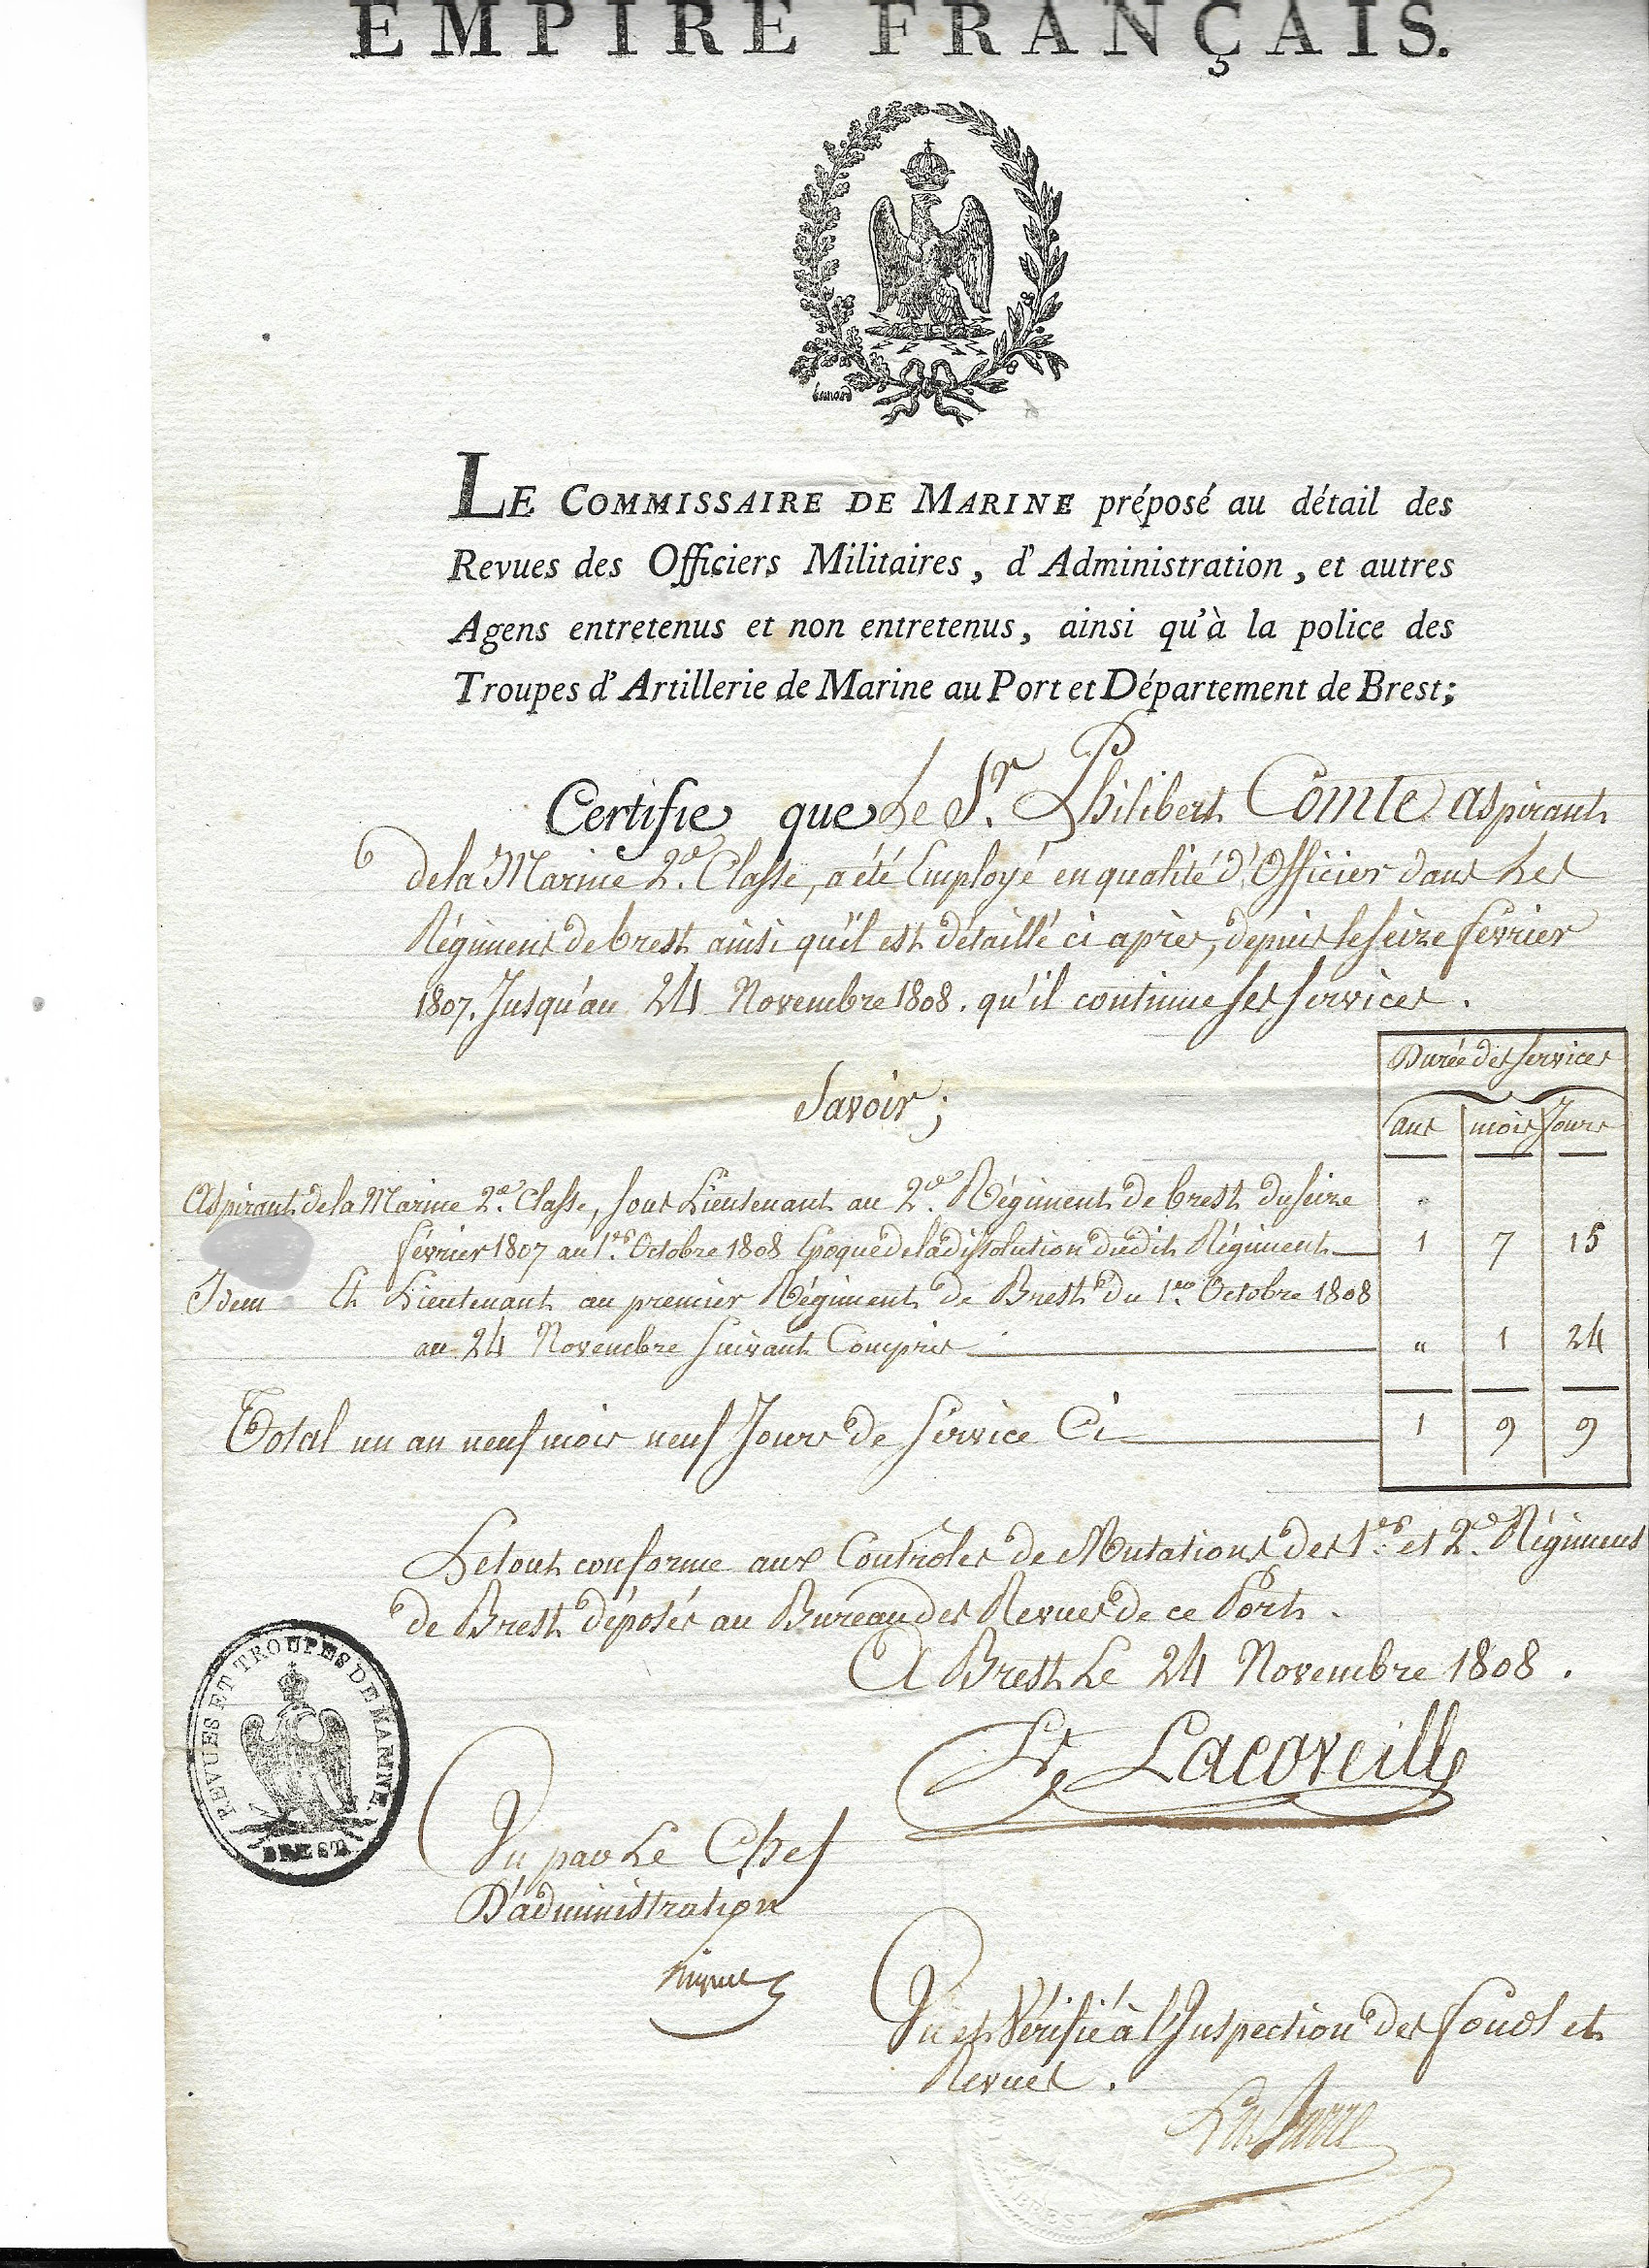 EMPIRE FRANÇAIS.
LE COMMISSAIRE DE MARINE préposé au détail des
Revues des Officiers Militaires, d'Administration, et autres
Agens entretenus et non entretenus, ainsi qu'à la police des
Troupes d'Artillerie de Marine au Port et Département de Brest;
Certifie que Le Sr. Philibert Comte aspirant
de la Marine 2de. Classe, a été Employé en qualité d'Officier dans Les
Régimens de brest ainsi qu'il est détaillé ci après, depuis le seize février
1807. Jusqu'au 24 Novembre 1808. qu'il continue ses services.
Durée des services
Savoir;
ans mois Jours
Aspirant de la Marine 2de. Classe, sous Lieutenant au 2de. Régiment de brest du seize
février 1807 au 1er. Octobre 1808 Epoque de la dissolution dudit Régiment 1 7 15
Idem Et Lieutenant au premier Régiment de Brest du 1er. Octobre 1808
au 24 Novembre suivant Compris " 1 24
Total un an neuf mois neuf Jours de service Ci 1 9 9
Le tout conforme aux Controles de Mutations des 1er. et 2e. Régimens
de Brest déposés au Bureau des Revues de ce Port.
A Brest Le 24 Novembre 1808.
REVUES ET TROUPES DE MARINE.
BREST.
Vu par Le Chef
D'administration
Vu et Vérifié à l'Inspection des fonds et
Revues.
BREST